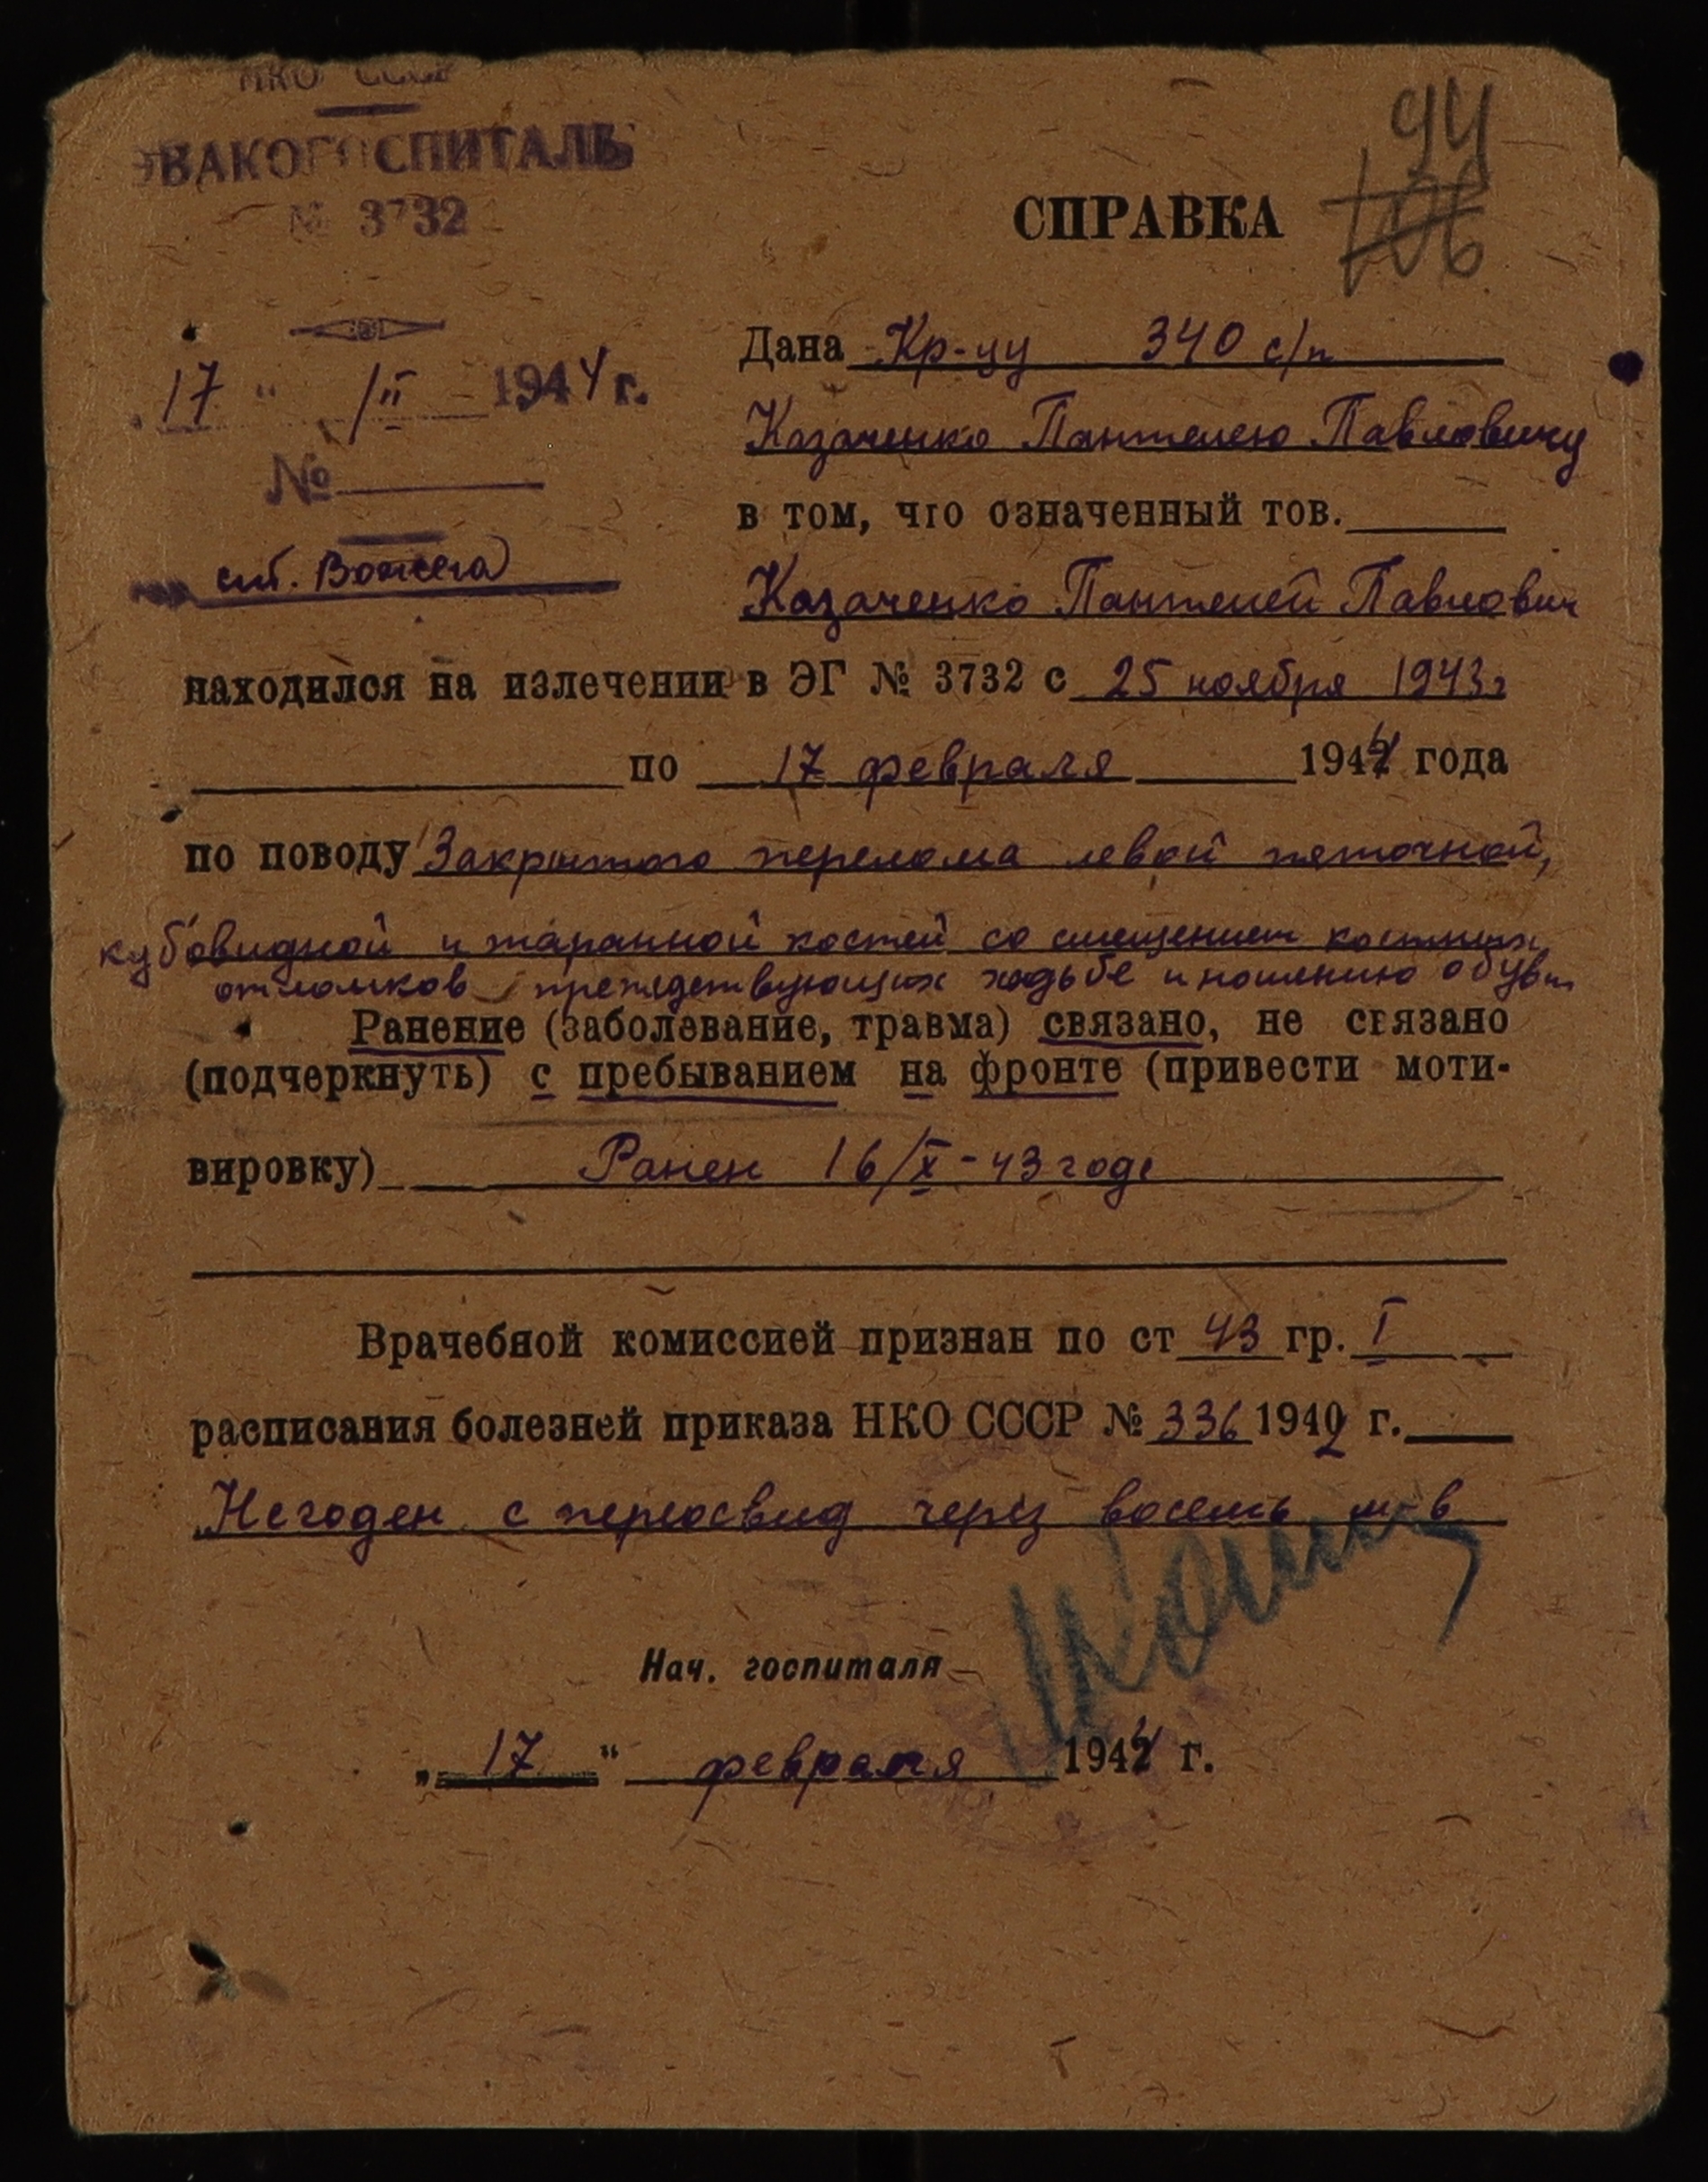 НКО СССР
ЭВАКОГОСПИТАЛЬ
№ 3732
94
106
СПРАВКА
17 " /II 1944 г.
№
ст. Вожега
Дана Кр-цу 340 с/п
Казаченко Пантелею Павловичу
в том, что означенный тов.
Казаченко Пантелей Павлович
находился на излечении в ЭГ № 3732 с 25 ноября 1943 г
по 17 февраля 1944 года
по поводу Закрытого перелома левой пяточной,
кубовидной и таранной костей со смещением костных
отломков, препядствующих ходьбе и ношению обуви
Ранение (заболевание, травма) связано, не связано
(подчеркнуть) с пребыванием на фронте (привести моти-
вировку) Ранен 16/X-43 годе
Врачебной комиссией признан по ст 43 гр. I
расписания болезней приказа НКО СССР № 336 1942 г.
Негоден с переосвид через восемь м-в
Нач. госпиталя
„ 17 " февраля 1944 г.